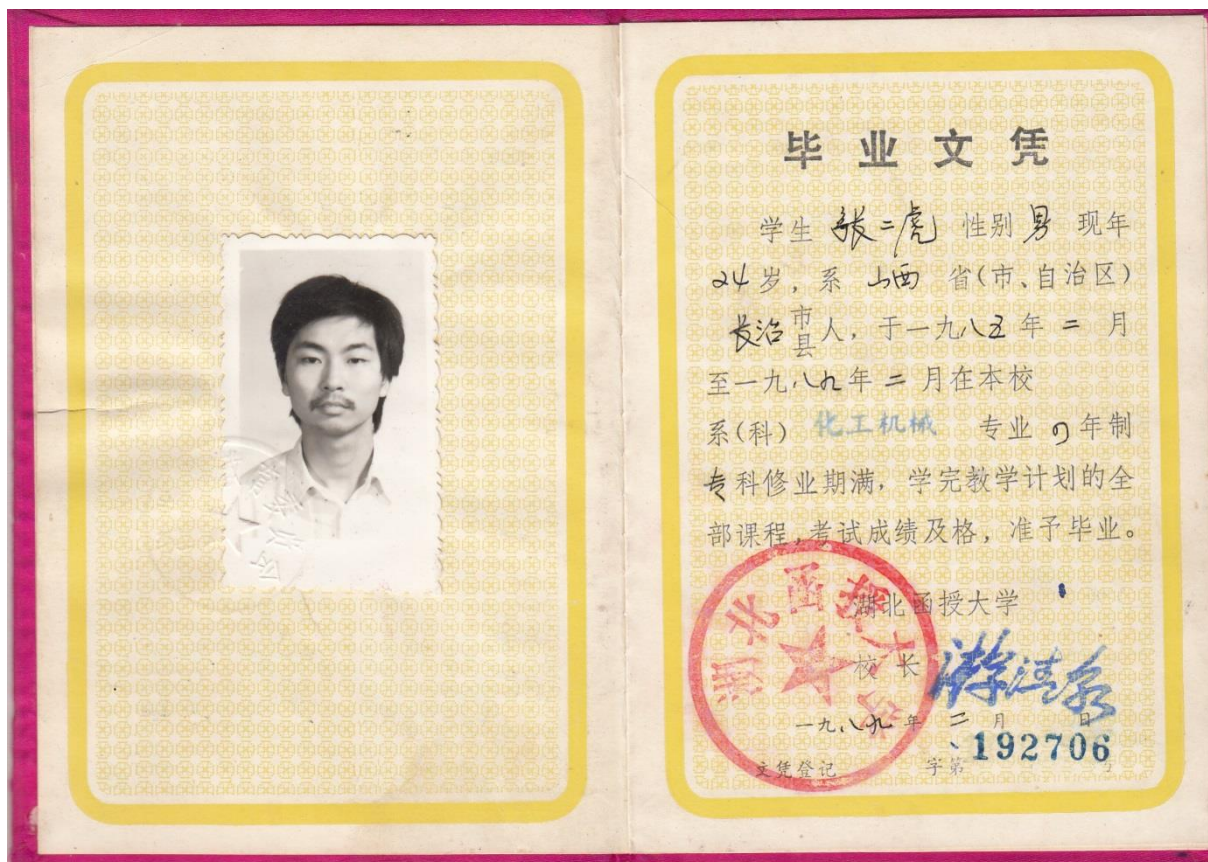 毕业文凭
学生 张二虎 性别 男 现年
24岁，系 山西 省(市、自治区)
长治 市县人，于一九八五年 二 月
至一九八九年 二 月在本校
系(科) 化工机械 专业 四年制
专科修业期满，学完教学计划的全
部课程，考试成绩及格，准予毕业。
湖北函授大学
校长
一九八九年 二 月 日
文凭登记 字第 192706 号
湖北函授大学